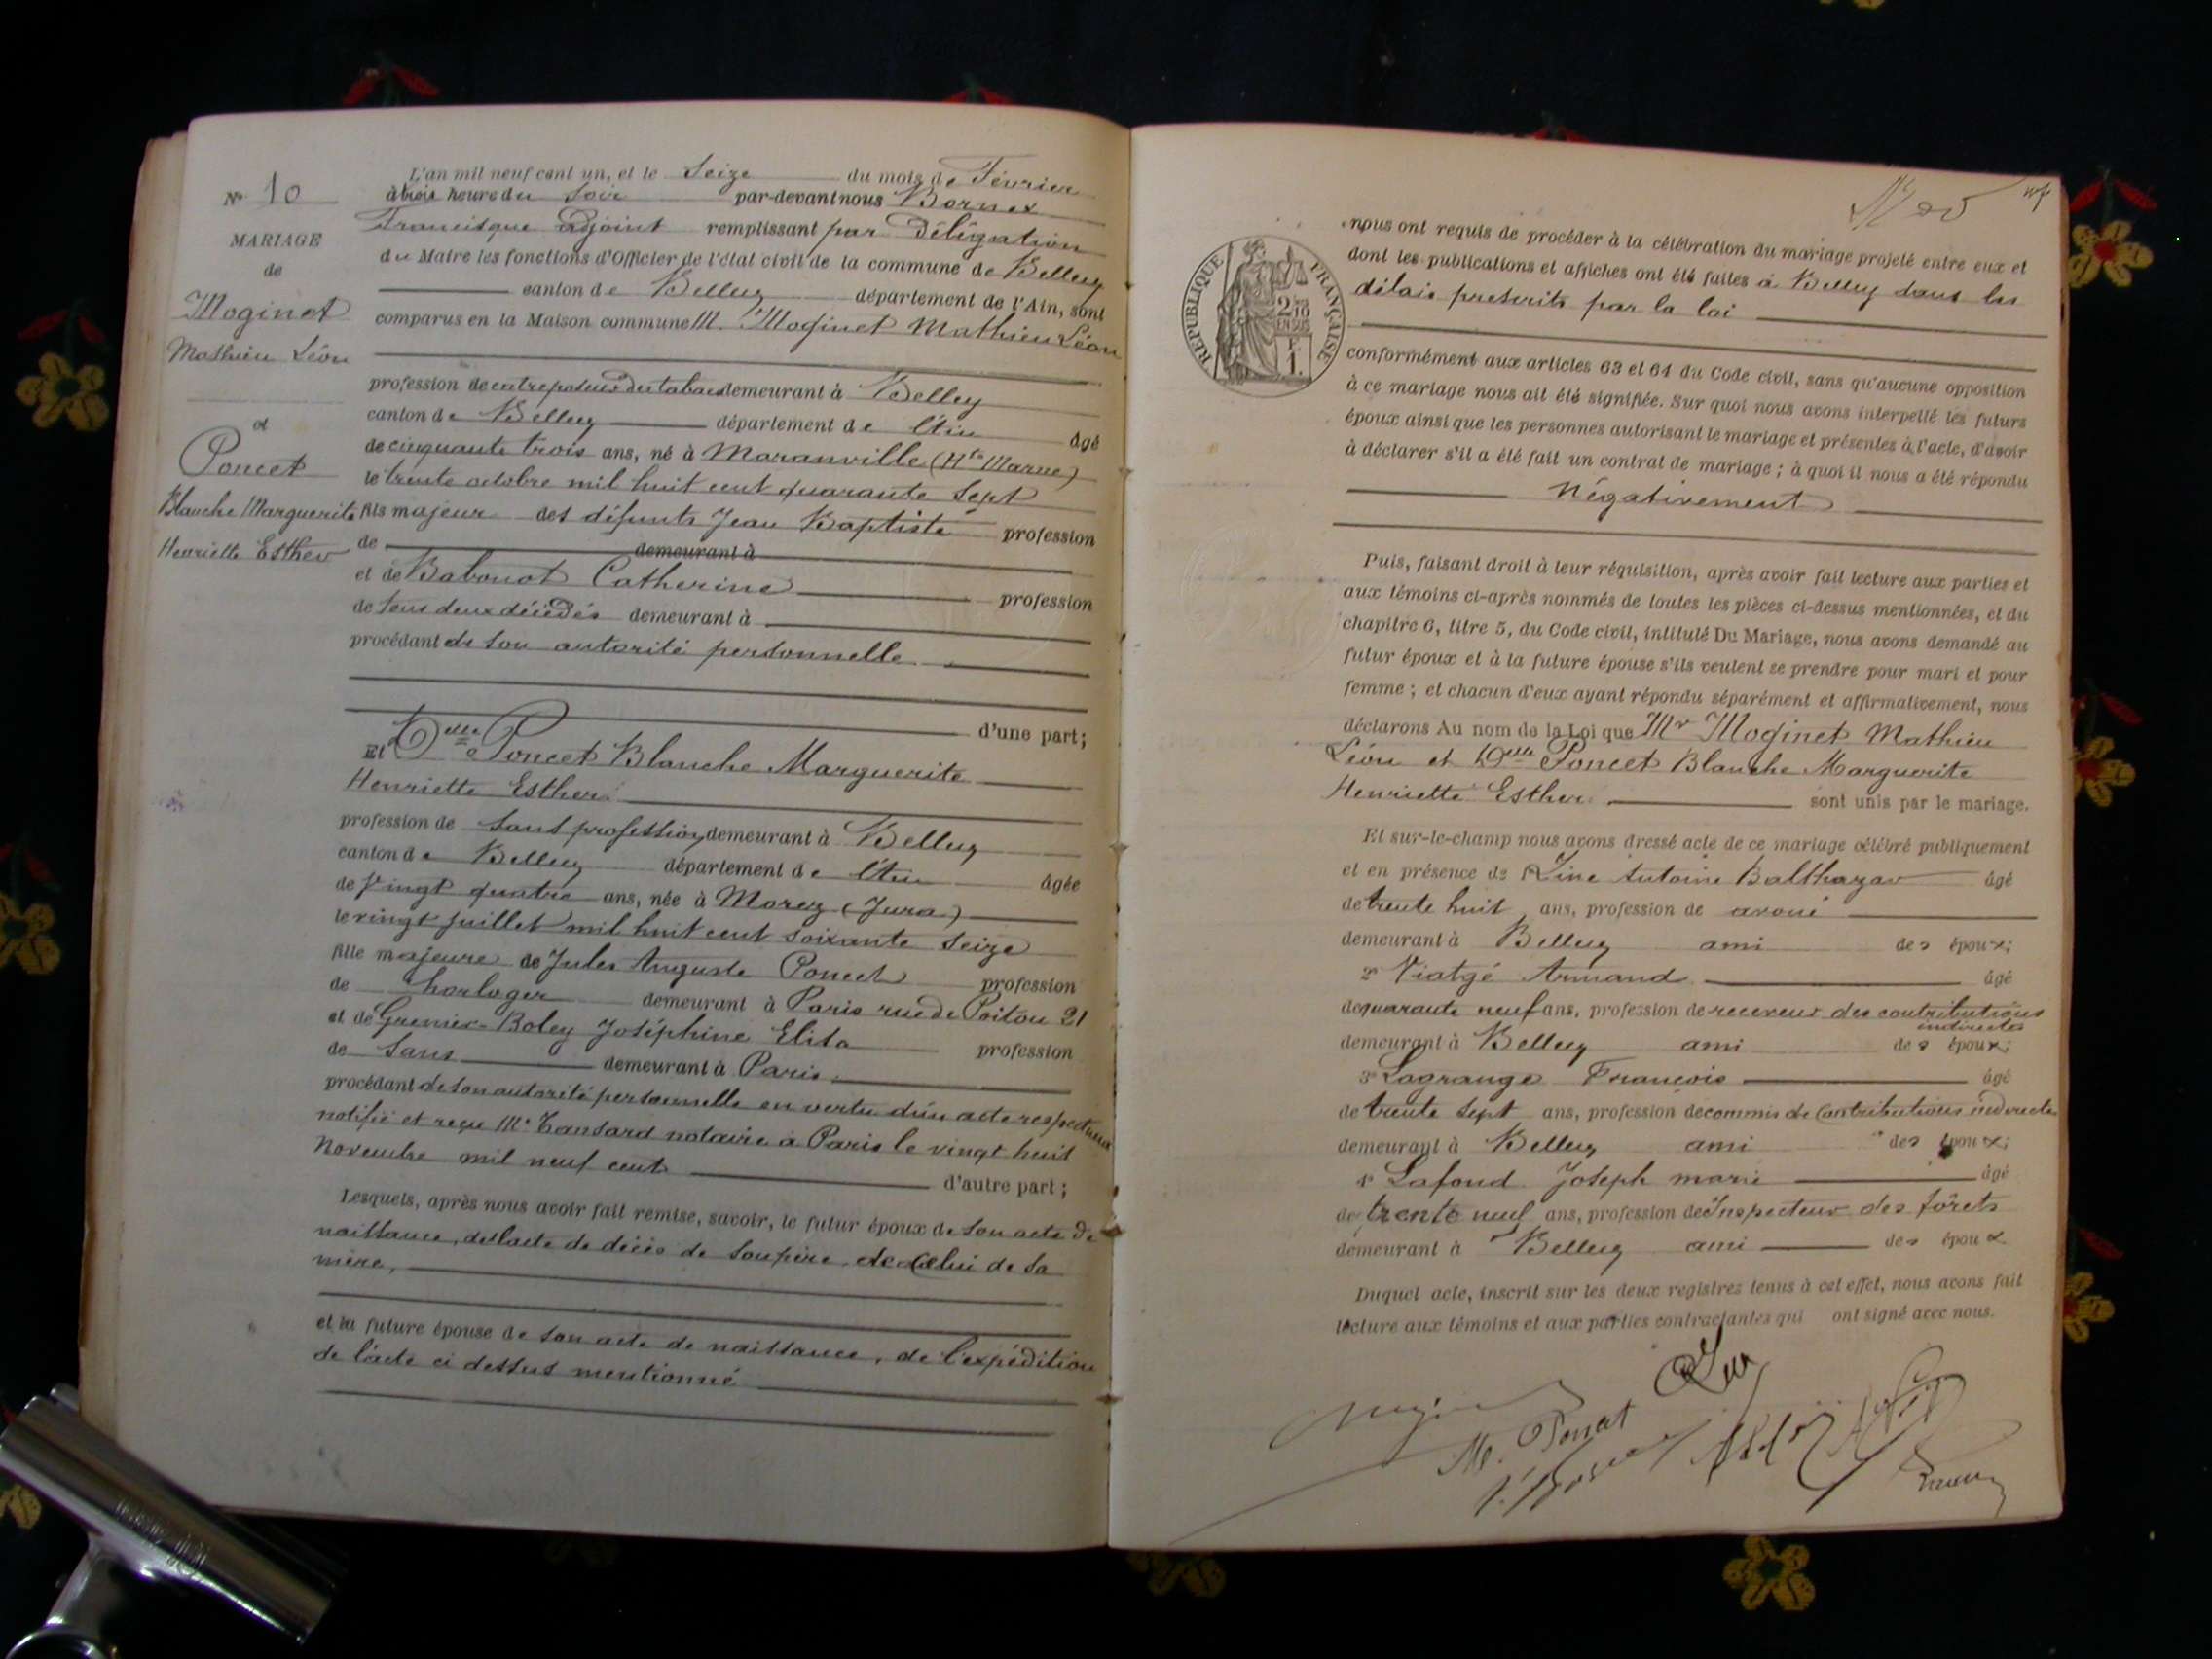 L'an mil neuf cent un, et le Seize du mois de Février
N° 10
à trois heure du Soir par-devant nous Bornex
Francisque Adjoint remplissant par Délégation
MARIAGE
du Maire les fonctions d'Officier de l'état civil de la commune de Belley
de
canton de Belley département de l'Ain, sont
Moginet
comparus en la Maison commune M. Moginet Mathieu Léon
Mathieu Léon
profession de entreposeur des tabacs demeurant à Belley
canton de Belley département de l'Ain âgé
et
de cinquante trois ans, né à Maranville (Hte Marne)
Poncet
le trente octobre mil huit cent quarante Sept
Blanche Marguerite
fils majeur des défunts Jean Baptiste profession
Henriette Esther
de demeurant à
et de Babouot Catherine profession
de tous deux décédés demeurant à
procédant de son autorité personnelle
d'une part;
Et Delle Poncet Blanche Marguerite
Henriette Esther
profession de Sans profession demeurant à Belley
canton de Belley département de l'Ain âgée
de Vingt quatre ans, née à Morez (Jura)
le vingt juillet mil huit cent soixante Seize
fille majeure de Jules Auguste Poncet profession
de horloger demeurant à Paris rue de Poitou 21
et de Grenier-Boley Joséphine Elisa profession
de Sans demeurant à Paris
procédant de son autorité personnelle en vertu d'un acte respectueux
notifié et reçu Me Tansard notaire à Paris le vingt huit
Novembre mil neuf cent d'autre part;
Lesquels, après nous avoir fait remise, savoir, le futur époux de son acte de
naissance, de l'acte de décès de son père, de celui de sa
mère,
et la future épouse de son acte de naissance, de l'expédition
de l'acte ci dessus mentionné
RÉPUBLIQUE FRANÇAISE
2/10
EN SUS
F.
1.
nous ont requis de procéder à la célébration du mariage projeté entre eux et
dont les publications et affiches ont été faites à Belley dans les
délais prescrits par la loi
conformément aux articles 63 et 64 du Code civil, sans qu'aucune opposition
à ce mariage nous ait été signifiée. Sur quoi nous avons interpellé les futurs
époux ainsi que les personnes autorisant le mariage et présentes à l'acte, d'avoir
à déclarer s'il a été fait un contrat de mariage; à quoi il nous a été répondu
Négativement
Puis, faisant droit à leur réquisition, après avoir fait lecture aux parties et
aux témoins ci-après nommés de toutes les pièces ci-dessus mentionnées, et du
chapitre 6, titre 5, du Code civil, intitulé Du Mariage, nous avons demandé au
futur époux et à la future épouse s'ils veulent se prendre pour mari et pour
femme; et chacun d'eux ayant répondu séparément et affirmativement, nous
déclarons Au nom de la Loi que Mr Moginet Mathieu
Léon et Delle Poncet Blanche Marguerite
Henriette Esther sont unis par le mariage.
Et sur-le-champ nous avons dressé acte de ce mariage célébré publiquement
et en présence de Antoine Balthazar âgé
de trente huit ans, profession de avoué
demeurant à Belley ami des époux;
2° Viatgé Armand âgé
de quarante neuf ans, profession de receveur des contributions
indirectes
demeurant à Belley ami des époux;
3° Lagrange François âgé
de trente Sept ans, profession de commis de Contributions indirectes
demeurant à Belley ami des époux;
4° Lafond Joseph marie âgé
de trente neuf ans, profession de Inspecteur des forêts
demeurant à Belley ami des époux
Duquel acte, inscrit sur les deux registres tenus à cet effet, nous avons fait
lecture aux témoins et aux parties contractantes qui ont signé avec nous.
M. Poncet